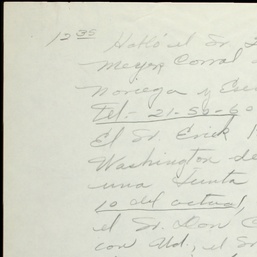 12 35 Habló el Sr.
Meyer Corral
Noriega y
Tel- 21-50-60
El Sr. Erick
Washington de
una Junta
10 del actual,
el Sr. Don
con Ud., el Sr